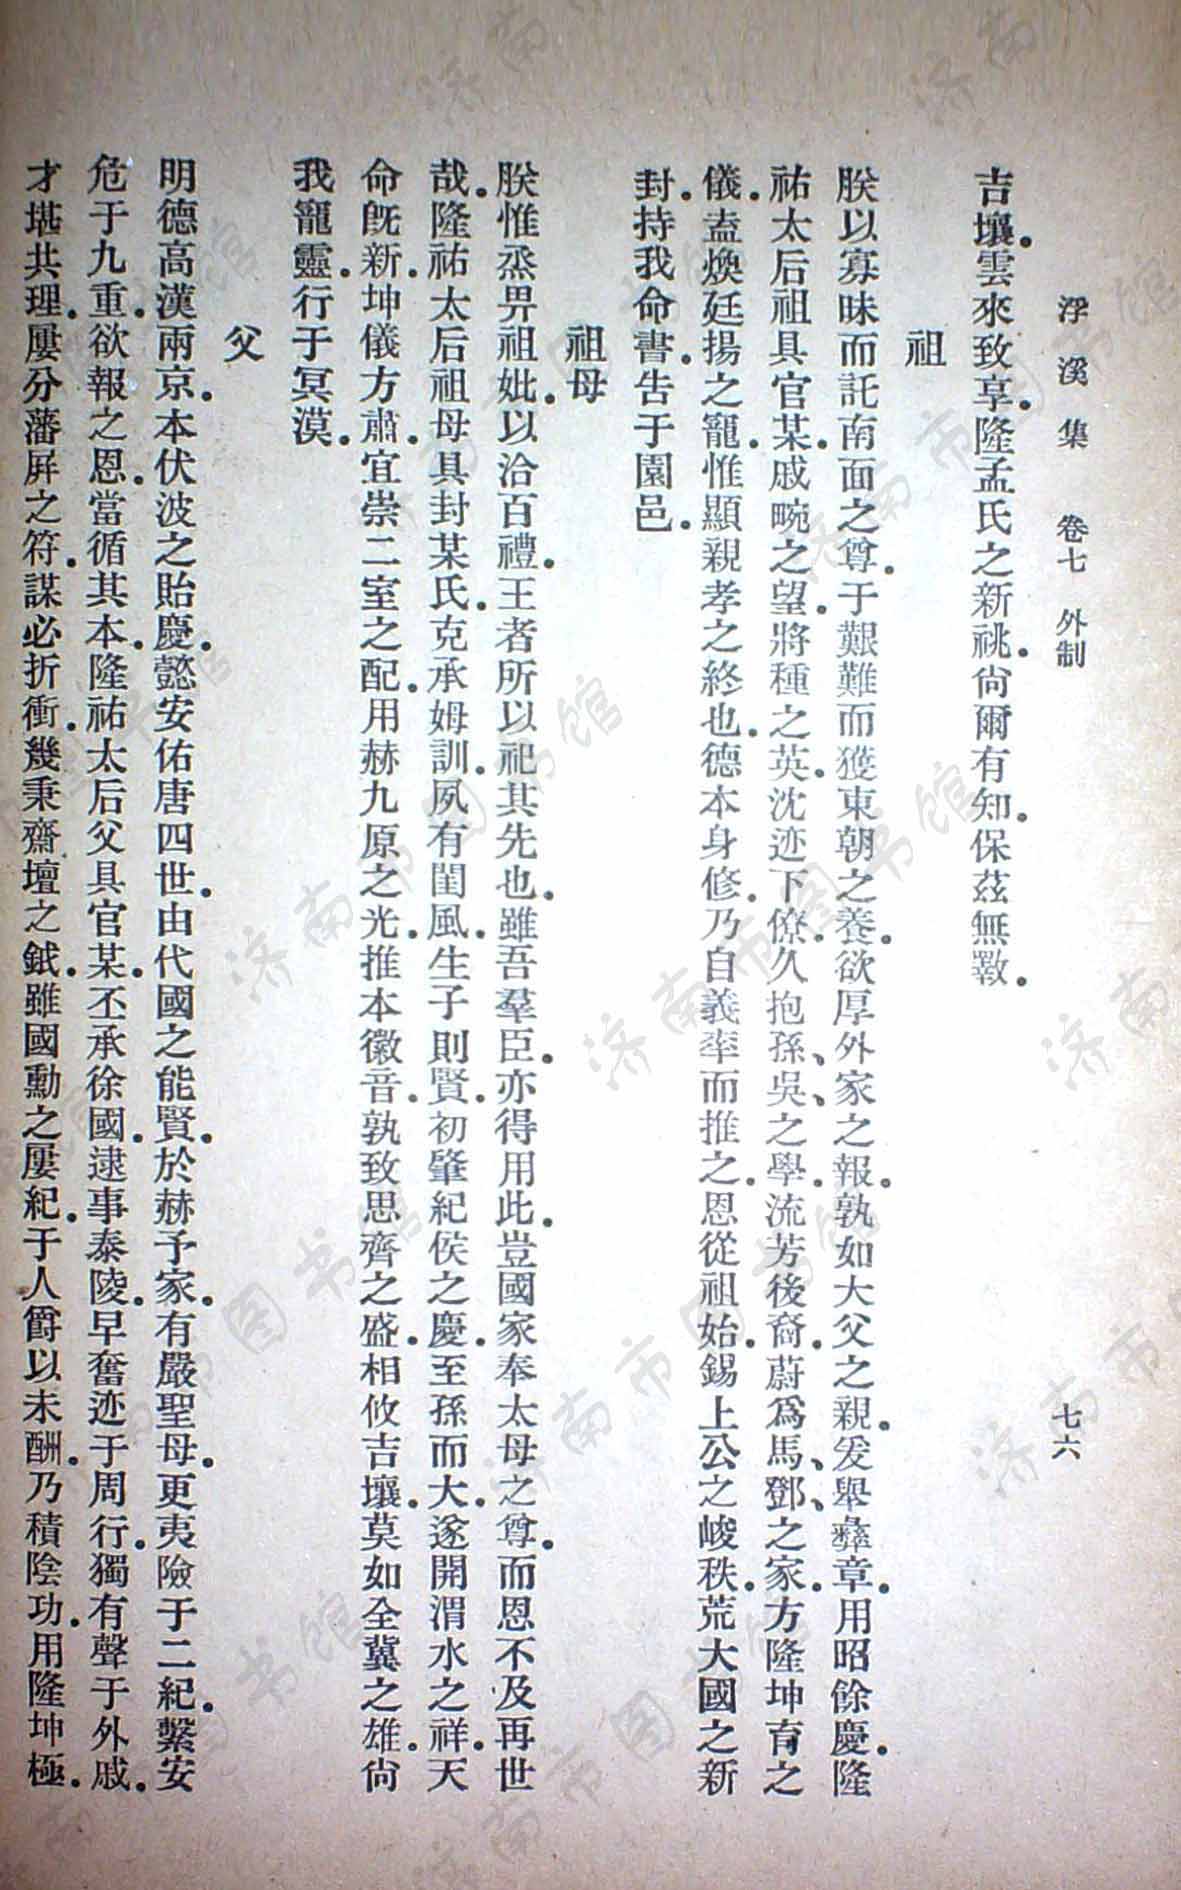 浮溪集　卷七　外制　七六
吉壤。雲來致享。隆孟氏之新祧。尙爾有知。保茲無斁。
祖
朕以寡昧而託南面之尊。于艱難而獲東朝之養。欲厚外家之報。孰如大父之親。爰舉彝章。用昭餘慶。隆
祐太后祖具官某。戚畹之望。將種之英。沈迹下僚。久抱孫、吳之學。流芳後裔。蔚爲馬、鄧、之家。方隆坤育之
儀。盍煥廷揚之寵。惟顯親孝之終也。德本身修。乃自義率而推之。恩從祖始。錫上公之峻秩。荒大國之新
封。持我命書。告于園邑。
祖母
朕惟烝畀祖妣。以洽百禮。王者所以祀其先也。雖吾羣臣。亦得用此。豈國家奉太母之尊。而恩不及再世
哉。隆祐太后祖母具封某氏。克承姆訓。夙有閨風。生子則賢。初肇紀侯之慶。至孫而大。遂開渭水之祥。天
命旣新。坤儀方肅。宜崇二室之配。用赫九原之光。推本徽音。孰致思齊之盛。相攸吉壤。莫如全冀之雄。尙
我寵靈。行于冥漠。
父
明德高漢兩京。本伏波之貽慶。懿安佑唐四世。由代國之能賢。於赫予家。有嚴聖母。更夷險于二紀。繫安
危于九重。欲報之恩。當循其本。隆祐太后父具官某。丕承徐國。逮事泰陵。早奮迹于周行。獨有聲于外戚。
才堪共理。屢分藩屛之符。謀必折衝。幾秉齋壇之鉞。雖國勳之屢紀。于人爵以未酬。乃積陰功。用隆坤極。
济南市图书馆